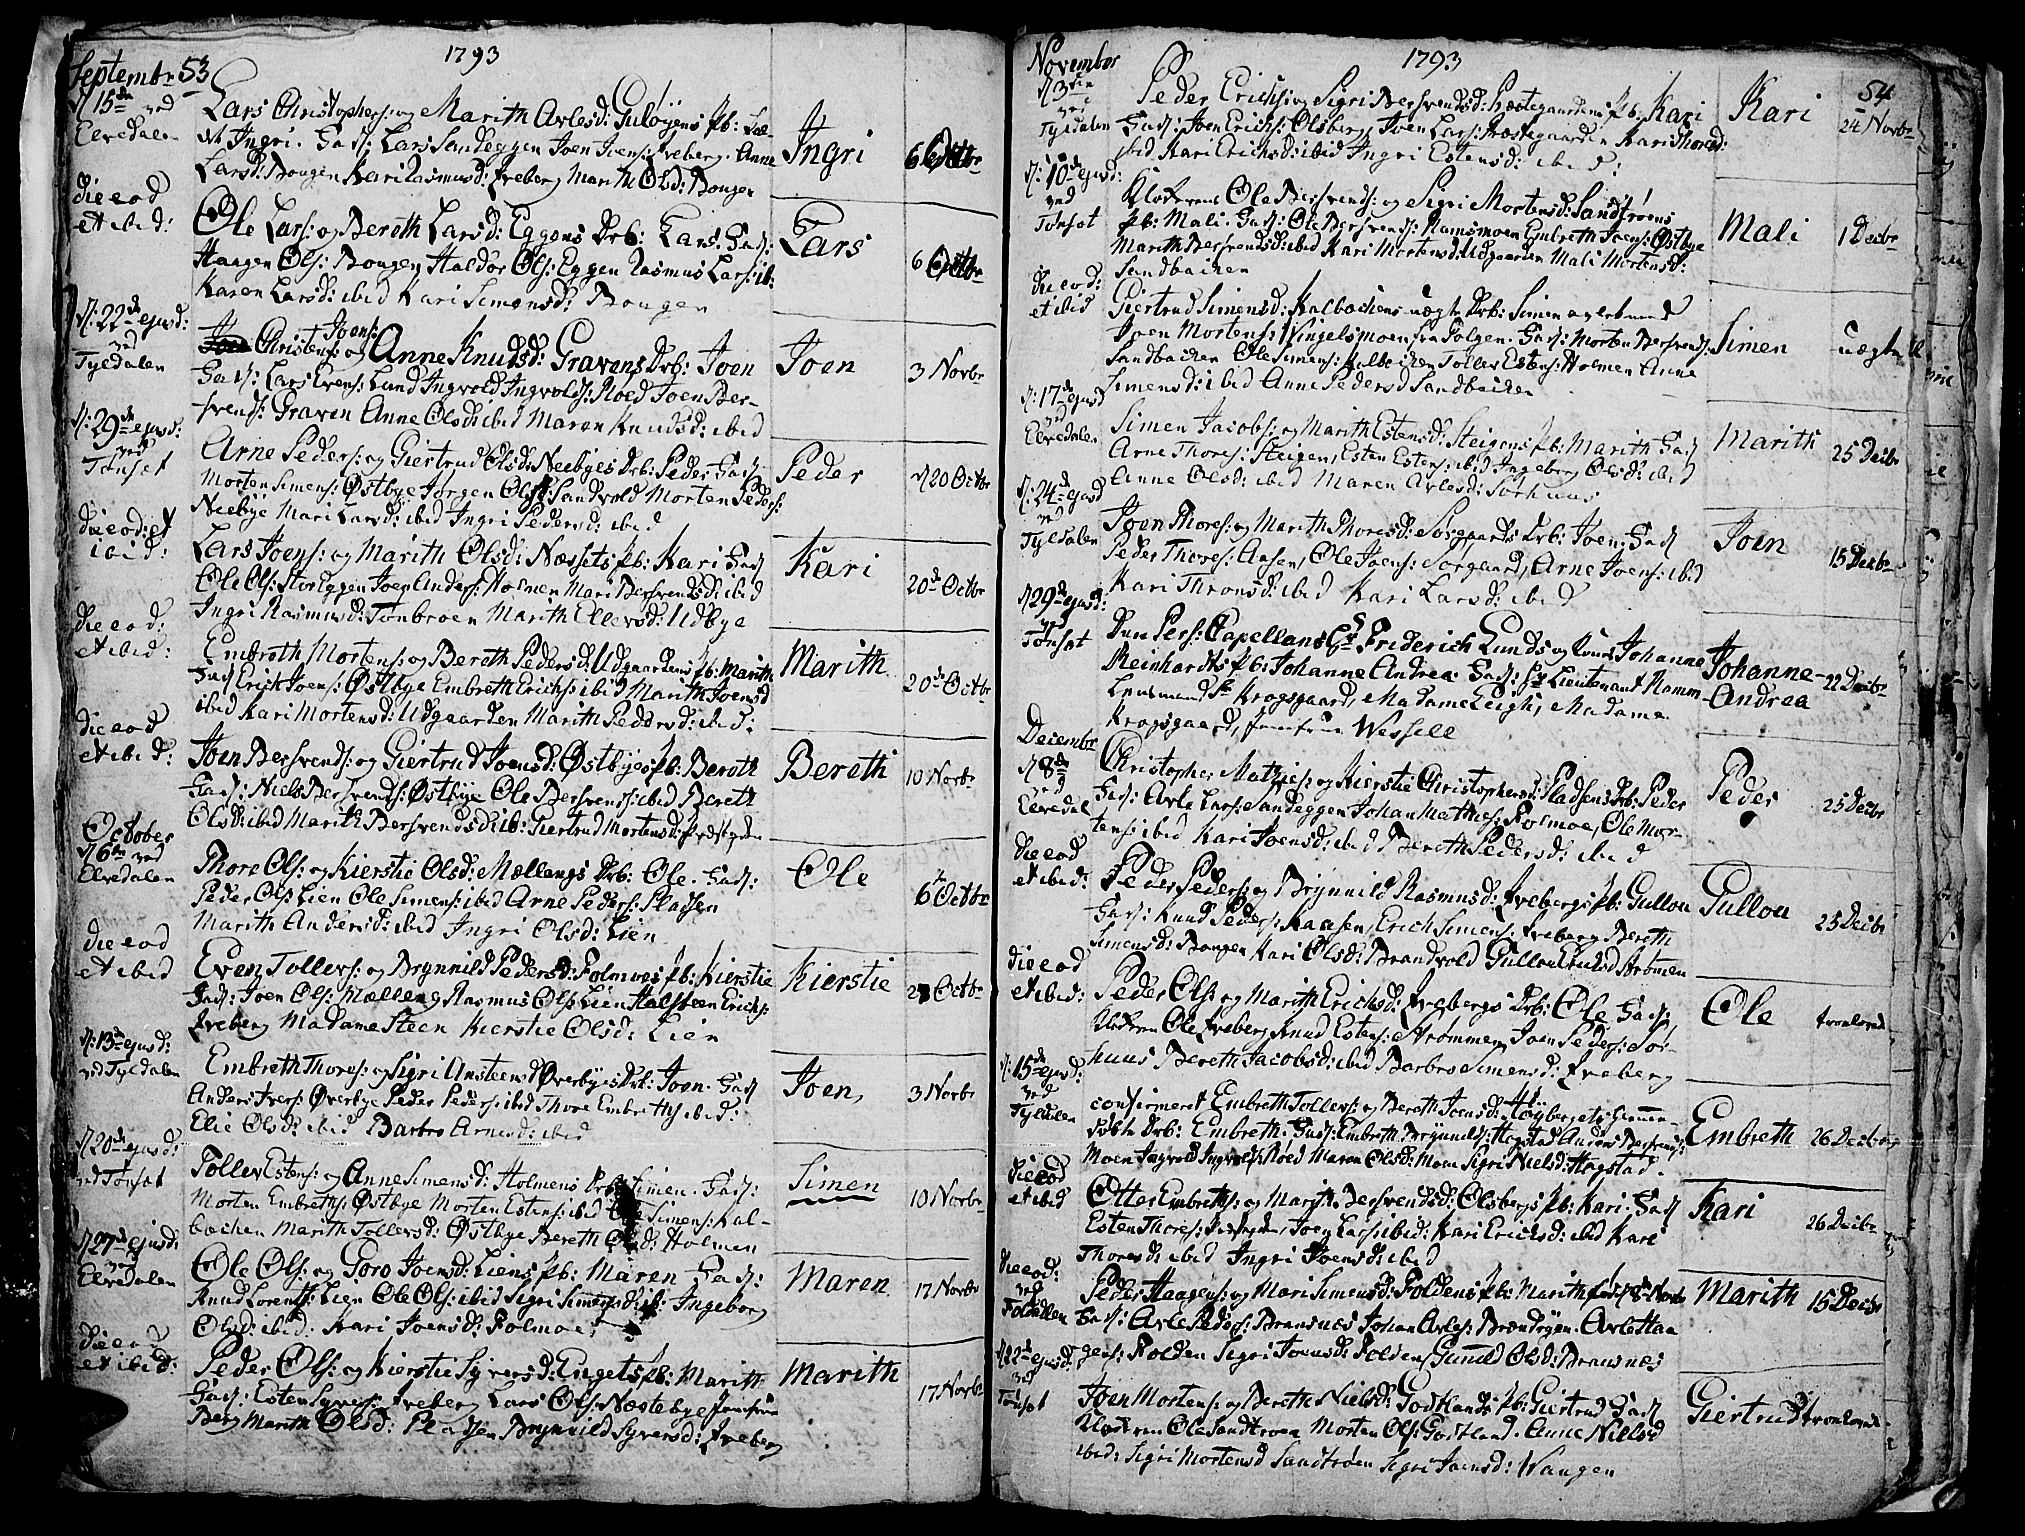 Septembr 53
1793
d 15de ved Elvedalen
Lars Christophers: og Marith Arlesd: Guløyens pb:
Ingri. Fad: Lars Sandeggen Joen Joens: Freberg. Anne
Larsd: Bougen Kari Rasmusd: Freberg Marith Olsd: Bougen
Ingri
6 Octbr
die eod et ibid:
Ole Lars: og Bereth Larsd: Eggens Drb: Lars. Fad:
Haagen Ols: Bougen Haldor Ols: Eggen Rasmus Lars: ib:
Karen Larsd: ibid Kari Simensd: Bougen
Lars
6 Octbr
d: 22de ejusd: ved Tyldalen
Christens: Joens: og Anne Knudsd: Gravens Drb: Joen
Fad: Lars Evens: Lund Ingvold Ingvolds: Moed Joen Ber-
svends: Graven Anne Olsd: ibid Maren Knudsd: ibid
Joen
3 Novbr
d: 29de ejusd: ved Tønset
Arne Peders: og Giertrud Olsd: Neebyes Drb: Peder Fad:
Morten Simens: Østbye Jørgen Ols: Sandvold Morten Peders:
Neebye Mari Larsd: ibid Ingri Pedersd: ibid
Peder
d 20 Octbr
die eod: et ibid:
Lars Joens: og Marith Olsd: Næssets pb: Kari Fad
Ole Ols: Storeggen Joen Anders: Holmen Mari Bersvendsd: ibid
Ingri Rasmusd: Tønbroen Marith Ellevsd: Udbye
Kari
20de Octbr
die eod: et ibid:
Embreth Mortens: og Bereth Pedersd: Udgaardens pb: Marith
Fad Erick Joens: Østbye Embreth Erichs: ibid Marith Joensd
ibid Kari Mortensd: Udgaarden Marith Pedersd: ibid:
Marith
20de Octbr
die eod et ibid:
Joen Bersvends: og Giertrud Joensd: Østbyes pb: Bereth
Fad: Niels Bersvends: Østbye Ole Bersvends: ibid Bereth
Olsd: ibid Marith Bersvendsd: ib: Giertrud Mortensd:
Bereth
10 Novbr
October
d 6te ved Elvedalen
Thore Ols: og Kierstie Olsd: Mællengs Drb: Ole. Fad:
Peder Ols: Lien Ole Simens: ibid Arne Peders: Pladsen
Marith Andersd: ibid Ingri Olsd: Lien
Ole
6te Octbr
die eod et ibid
Even Tollevs: og Brynnild Pedersd: Folmoes pb: Kierstie
Fad: Joen Ols: Mælleng Rasmus Ols: Lien Halsteen Erichs:
Freberg Madame Steen Kierstie Olsd: Lien
Kierstie
27 Octbr
d: 13de ejusd: ved Tyldalen
Embreth Thores: og Sigri Ansteensd Øverbyes Drb: Joen. Fad
Anders Ivers: Øverbye Peder Peders: ibid Thore Embreths: ibid:
Elie Olsd: ibid Barbro Arnesd: ibid
Joen
3 Novbr
d 20de ejusd: ved Tønset
Tollev Estens: og Anne Simensd: Holmens Drb: Simen. Fad:
Morten Embreths: Østbye Morten Estens: ibid Ole Simens: Kal-
bachen Marith Tollevsd: Østbye Bereth Olsd: Holmen
Simen
10 Novbr
d 27de ejusd: ved Elvedalen
Ole Ols: og Goro Joensd: Liens pb: Maren Fad:
Knud Lorents: Lien Ole Ols: ibid Sigri Simensd: ib: Ingeborg
Olsd: ibid. Kari Joensd: Folmoe
Maren
17 Novbr
die eod et ibid:
Peder Ols: og Kierstie Syversd: Engets pb: Marith
Fad: Esten Syvers: Freberg Lars Ols: Næstebye Jomfrue
Berg Marith Olsd: Pladsen Brynnild Syversd: Freberg
Marith
17 Novbr
November
1793
54
d 3die ved Tyldalen
Peder Erichs: og Sigri Bersvendsd: pb: Kari
Fad: Joen Erichs: Olsberg, Joen Lars: Kari Thoresd:
ibid Kari Erichsd: ibid Ingri Estensd: ibid:
Kari
24 Novbr
d: 10de ejusd: ved Tønset
Ole Bersvends: og Sigri Mortensd: Sandtrøens
pb: Mali. Fad: Ole Bersvends: Ramsmoen Embreth Joens: Østbye
Marith Bersvendsd: ibid Kari Mortensd: Udgaarden Mali Mortensd:
Sandbachen
Mali
1 Decbr
die eod: et ibid
Giertrud Simensd: Kalbachens uægte Drb: Simen
Joen Mortens: Vingelsmoen fra Tolgen. Fad: Morten Bersvends:
Sandbachen Ole Simens: Kalbachen Tollev Estens: Holmen Anne
Simensd: ibid Anne Pedersd Sandbachen
Simen
uægte
d: 17de ejusd ved Elvedalen
Simen Jacobs: og Marith Estensd: Steigens pb: Marith Fad
Arne Thores: Steigen, Esten Estens: ibid Ingeborg Olsd: ibid
Anne Olsd: ibid Maren Arlesd: Sørhuus
Marith
25 Decbr
d: 24de ejusd ved Tyldalen
Joen Thores: og Marith Thoresd: Søegaards Drb: Joen: Fad
Peder Thores: Aasen, Ole Joens: Sorgaard, Arne Joens: ibid
Kari Thronsd: ibid Kari Larsd: ibid
Joen
15 Decbr
d 29de ejusd: ved Tønset
Den Pers: Capellans Hr Friderich Lunds og Kones Johanne
Reinhardts pb: Johanne Andrea: Fad: Hr Lieutenant Ramm
Lensmand Sr Krogsgaard, Madame Leigh, Madame
Krogsgaard, Jomfrue Wessell
Johanne-
Andrea
22 Decbr
December
d 8de ved Elvedal
Christopher Mathies: og Kierstie Christophersd: Pladsens Drb: Peder
Fad: Arle Lars: Sandeggen Johan Mathies: Folmoe, Ole Mor-
tens: ibid Kari Joensd: ibid Bereth Pedersd: ibid
Peder
25 Decbr
die eod et ibid:
Peder Peders: og Brynnild Rasmusd: Frebergs pb: Gullou
Fad: Knud Peders: Kaasen, Erich Simens: Freberg Bereth
Simensd: Bougen Kari Olsd: Brandvold Gullou Strømmen
Gullou
25 Decbr
die eod et ibid:
Peder Ols: og Marith Erichsd: Frebergs Drb: Ole Fad:
Ole Freberg Knud Estens: Strømmen Joen Peders: Sør-
huus Bereth Jacobsd: ibid Barbro Simensd: Freberg
Ole
d: 15de ejusd: ved Tyldalen
confirmeret Embreth Tollevs: og Bereth Joensd: Høybergets hiemme-
døbte Drb: Embreth. Fad: Embreth Brynnilds: Hogstad Anders Bersvends:
Moen Ingvold Ingvolds: Moed Maren Olsd: Moen Sigri Nielsd: Hogstad.
Embreth
26 Decbr
die eod et ibid
Otter Embreths: og Marith Bersvendsd: Olsbergs pb: Kari. Fad
Esten Thores: Joen Lars: ibid: Kari Erichsd: ibid Kari
Thoresd: ibid Ingri Joensd: ibid
Kari
26 Decbr
die eod: ved Foldalen
Peder Haagens: og Mari Simensd: Foldens pb: Marith
Fad: Arle Peders: Brænsnæs Johan Arles: Brændryen. Arle Haa
gens: Folden Sigri Joensd: Folden Gunild Olsd: Brænsnæs
Marith
15 Decbr
d: 22de ejusd: ved Tønset
Joen Mortens: og Bereth Nielsd: Godtlands pb: Giertrud Fad
Ole Sandtrøen Morten Ols: Godtland. Anne Nielsd
ibid: Sigri Mortensd Sandtrøen Sigri Joensd: Vangen
Giertrud